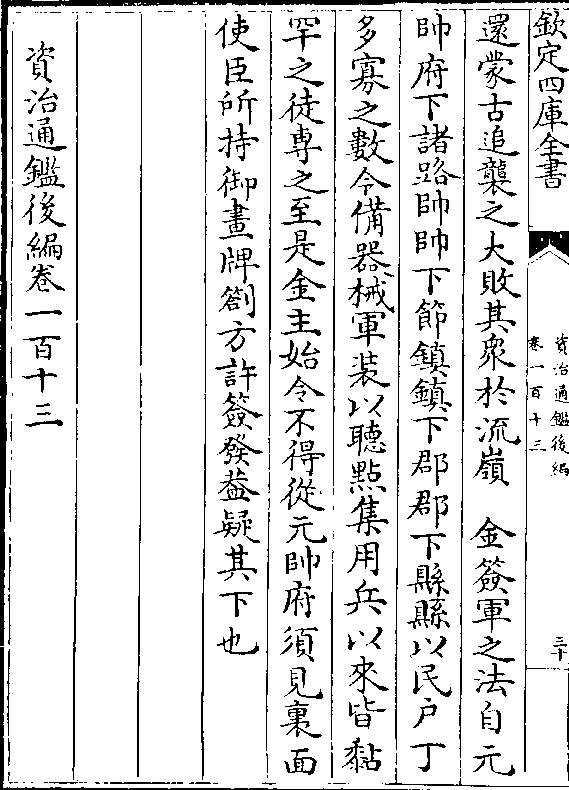 欽定四庫全書
資治通鑑後編
卷一百十三
三十
還蒙古追襲之大敗其衆於流嶺　金簽軍之法自元
帥府下諸路帥帥下節鎮鎮下郡郡下縣縣以民户丁
多寡之數令備器械軍裝以聽點集用兵以來皆黏
罕之徒専之至是金主始令不得從元帥府須見裏面
使臣所持御畫牌劄方許簽發葢疑其下也
資治通鑑後編卷一百十三